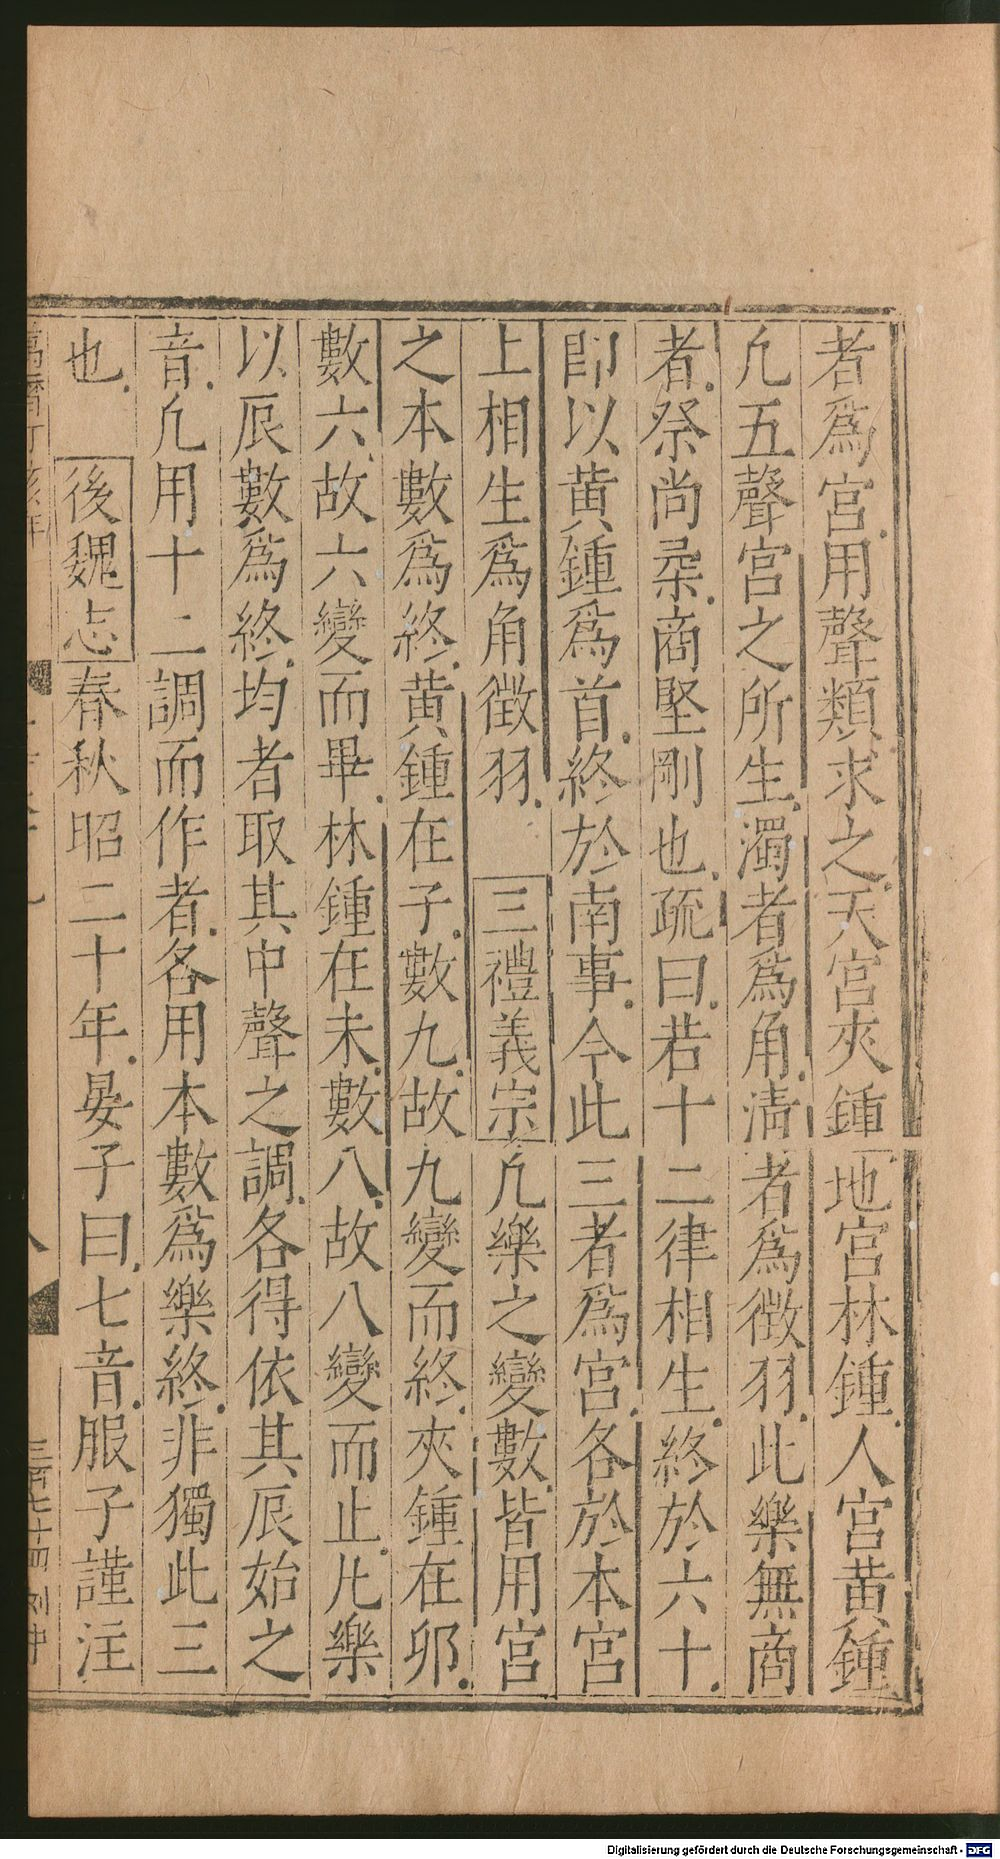 者爲宮用聲類求之天宮夾鍾地宮林鍾人宮黃鍾
凢五聲宮之所生濁者爲角清者爲徴羽此樂無商
者祭尚柔商堅剛也疏曰若十二律相生終於六十
卽以黃鍾爲首終於南事今此三者爲宮各於本宮
上相生爲角徴羽 三禮義宗凢樂之變數皆用宮
之本數爲終黃鍾在子數九故九變而終夾鍾在卯
數六故六變而畢林鍾在未數八故八變而止凢樂
以辰數爲終均者取其中聲之調各得依其辰始之
音凢用十二調而作者各用本數爲樂終非獨此三
也 後魏志春秋昭二十年晏子曰七音服子謹注
八
三百七十四 刘中
Digitalisierung gefördert durch die Deutsche Forschungsgemeinschaft - DFG